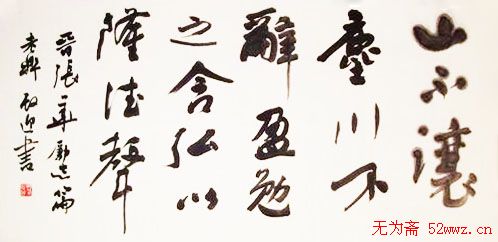 山不讓
塵川不
辭盈勉
之含弘以
隆德聲
晉張華勵志篇
書
无为斋 52wwz.cn